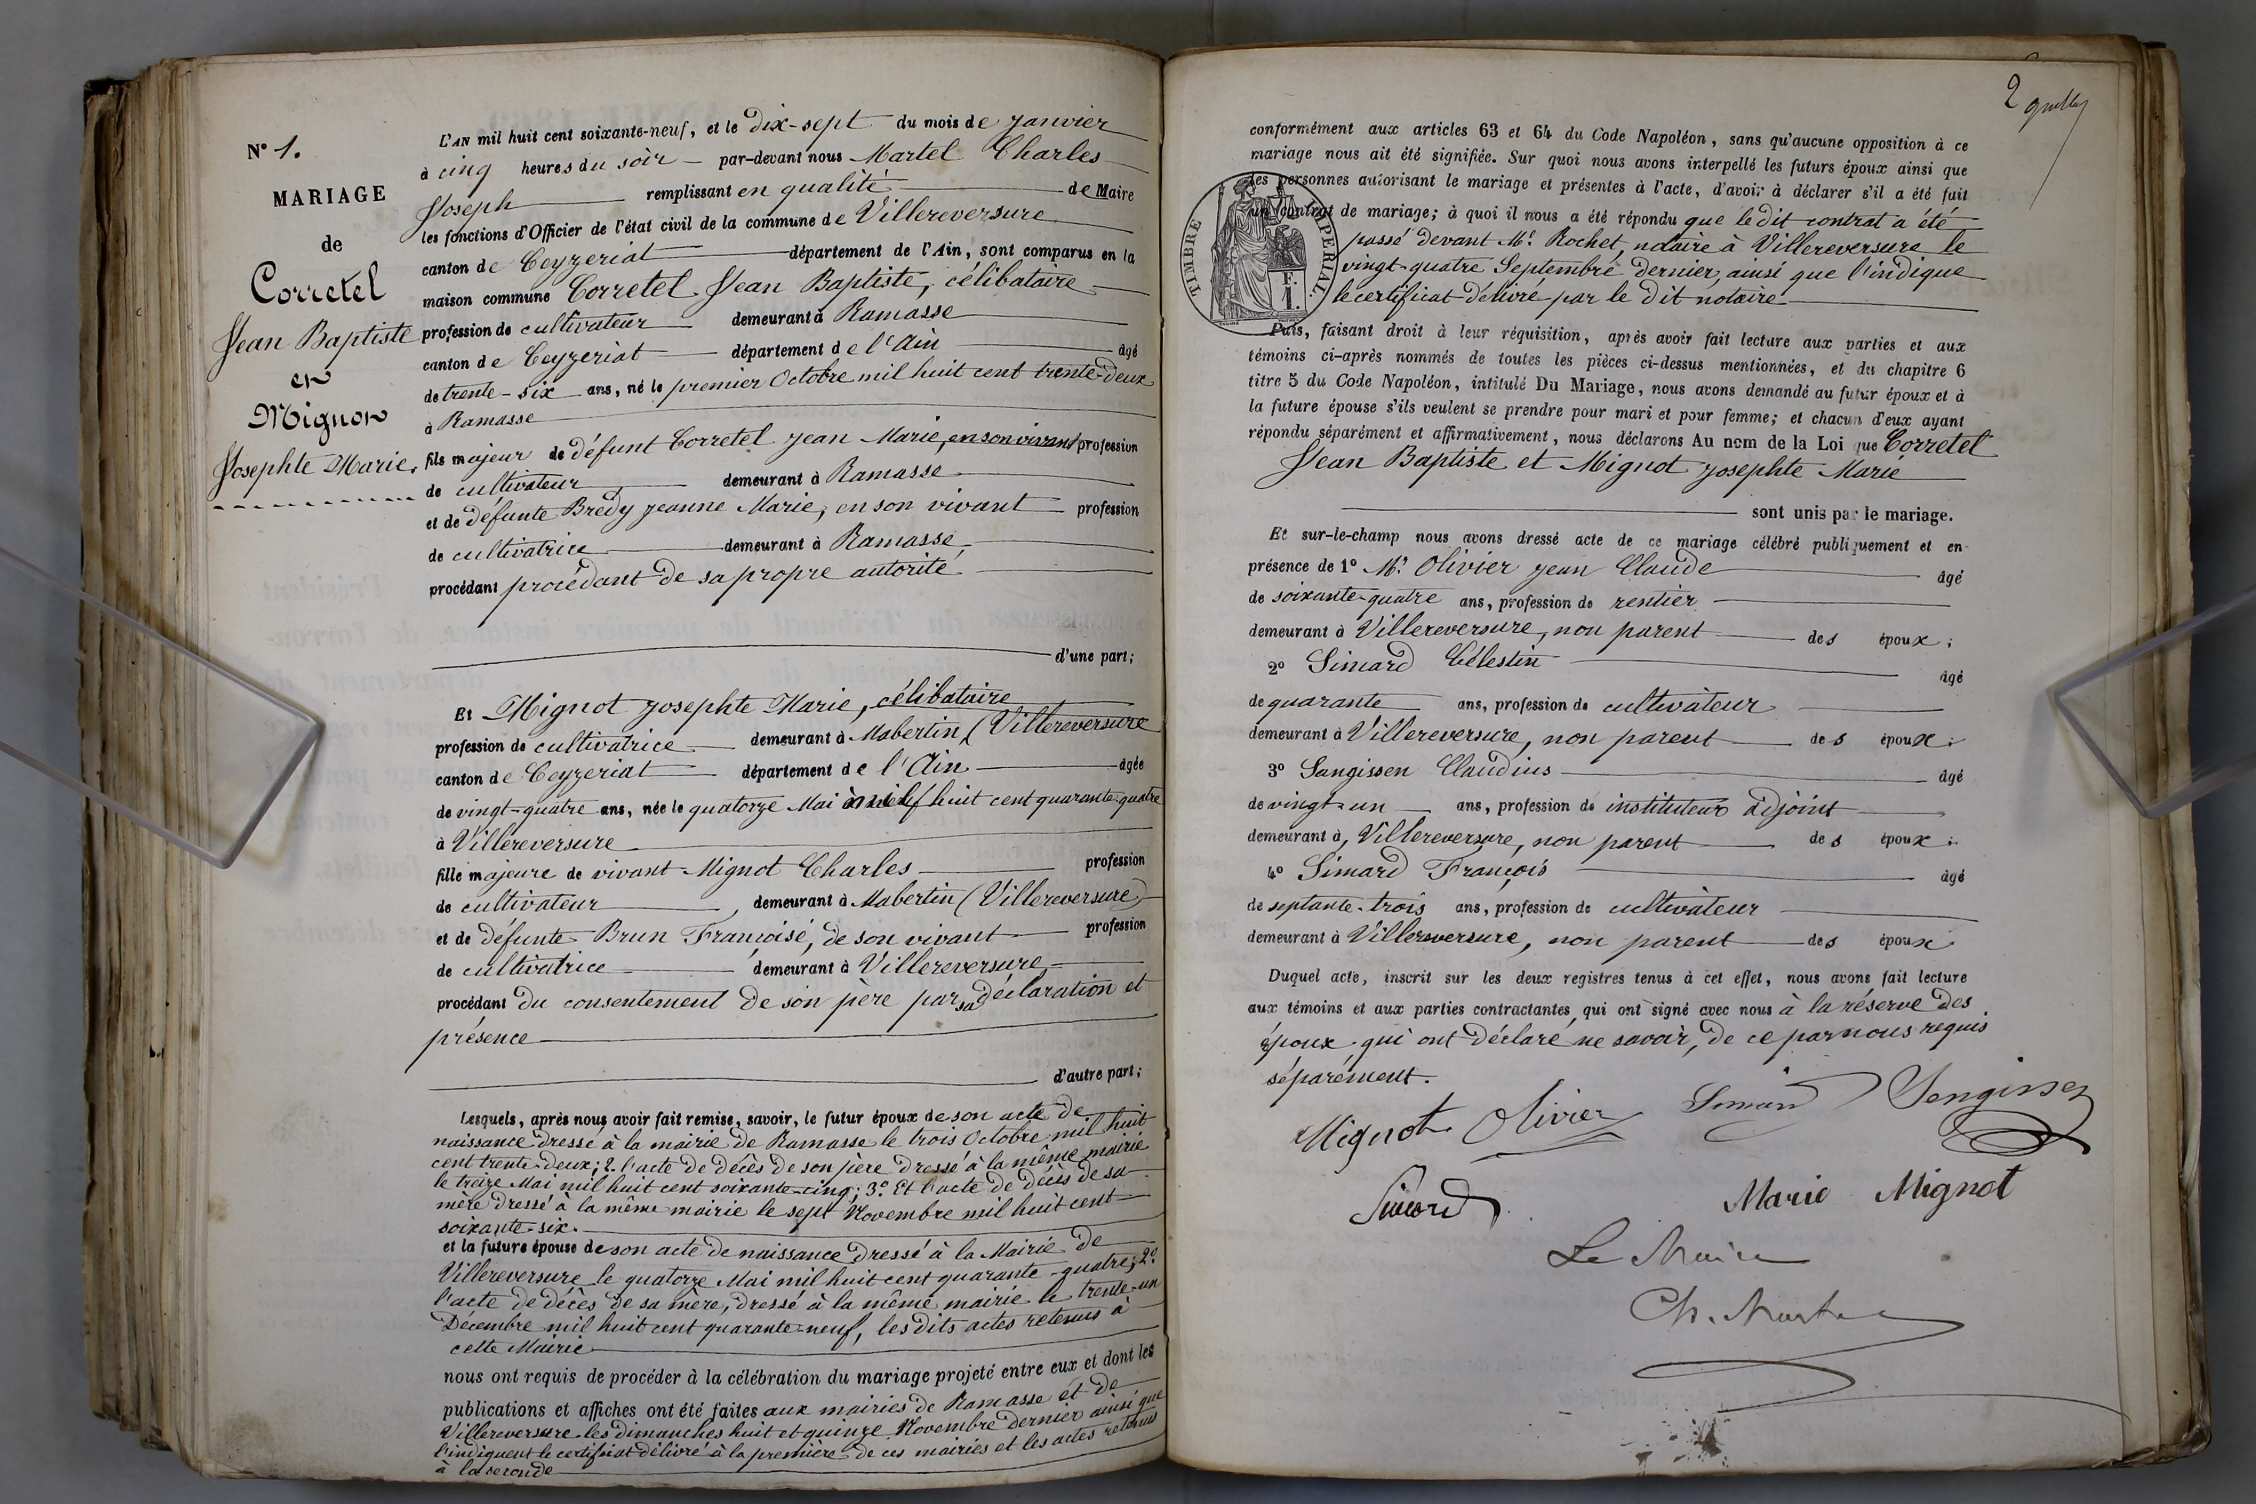 N° 1.
MARIAGE
de
Corretel
Jean Baptiste
et
Mignon
Josephte Marie.
L'AN mil huit cent soixante-neuf, et le dix-sept du mois de janvier
à cinq heures du soir par-devant nous Martel Charles
Joseph remplissant en qualité de Maire
les fonctions d'Officier de l'état civil de la commune de Villereversure
canton de Ceyzeriat département de l'Ain, sont comparus en la
maison commune Corretel Jean Baptiste, célibataire
profession de cultivateur demeurant à Ramasse
canton de Ceyzeriat département de l'Ain âgé
de trente-six ans, né le premier Octobre mil huit cent trente-deux
à Ramasse
fils majeur de défunt Corretel Jean Marie, en son vivant profession
de cultivateur demeurant à Ramasse
et de défunte Bredy Jeanne Marie, en son vivant profession
de cultivatrice demeurant à Ramasse
procédant procédant de sa propre autorité
d'une part;
Et Mignot Josephte Marie, célibataire
profession de cultivatrice demeurant à Mabertin (Villereversure
canton de Ceyzeriat département de l'Ain âgée
de vingt-quatre ans, née le quatorze Mai mil huit cent quarante-quatre
à Villereversure
fille majeure de vivant Mignot Charles profession
de cultivateur demeurant à Mabertin (Villereversure)
et de défunte Brun Françoise, de son vivant profession
de cultivatrice demeurant à Villereversure
procédant du consentement de son père par sa déclaration et
présence
d'autre part;
Lesquels, après nous avoir fait remise, savoir, le futur époux de son acte de
naissance dressé à la mairie de Ramasse le trois Octobre mil huit
cent trente-deux; 2. l'acte de décès de son père dressé à la même mairie
le treize Mai mil huit cent soixante-cinq; 3°. Et l'acte de décès de sa
mère dressé à la même mairie le sept Novembre mil huit cent
soixante-six.
et la future épouse de son acte de naissance dressé à la Mairie de
Villereversure le quatorze Mai mil huit cent quarante-quatre; 2°.
l'acte de décès de sa mère, dressé à la même mairie le trente-un
Décembre mil huit cent quarante-neuf, les dits actes retenus à
cette Mairie
nous ont requis de procéder à la célébration du mariage projeté entre eux et dont les
publications et affiches ont été faites aux mairies de Ramasse et de
Villereversure les dimanches huit et quinze Novembre dernier ainsi que
l'indiquent le certificat délivré à la première de ces mairies et les actes retenus
à la seconde
2
conformément aux articles 63 et 64 du Code Napoléon, sans qu'aucune opposition à ce
mariage nous ait été signifiée. Sur quoi nous avons interpellé les futurs époux ainsi que
les personnes autorisant le mariage et présentes à l'acte, d'avoir à déclarer s'il a été fait
un contrat de mariage; à quoi il nous a été répondu que le dit contrat a été
passé devant Mr. Rochet, notaire à Villereversure le
vingt-quatre Septembre dernier, ainsi que l'indique
le certificat délivré par le dit notaire
TIMBRE IMPERIAL.
1 F.
Puis, faisant droit à leur réquisition, après avoir fait lecture aux parties et aux
témoins ci-après nommés de toutes les pièces ci-dessus mentionnées, et du chapitre 6
titre 5 du Code Napoléon, intitulé Du Mariage, nous avons demandé au futur époux et à
la future épouse s'ils veulent se prendre pour mari et pour femme; et chacun d'eux ayant
répondu séparément et affirmativement, nous déclarons Au nom de la Loi que Corretel
Jean Baptiste et Mignot Josephte Marie
sont unis par le mariage.
Et sur-le-champ nous avons dressé acte de ce mariage célébré publiquement et en
présence de 1° Mr. Olivier Jean Claude âgé
de soixante-quatre ans, profession de rentier
demeurant à Villereversure, non parent des époux;
2° Simard Célestin âgé
de quarante ans, profession de cultivateur
demeurant à Villereversure, non parent des époux;
3° Sangissen Claudius âgé
de vingt-un ans, profession de instituteur adjoint
demeurant à, Villereversure, non parent des époux;
4° Simard François âgé
de septante-trois ans, profession de cultivateur
demeurant à Villereversure, non parent des époux
Duquel acte, inscrit sur les deux registres tenus à cet effet, nous avons fait lecture
aux témoins et aux parties contractantes qui ont signé avec nous à la réserve des
époux qui ont déclaré ne savoir, de ce par nous requis
séparément.
Mignot Olivier Simard Sengissen
Simard Marie Mignot
Le Maire
Ch. Martel